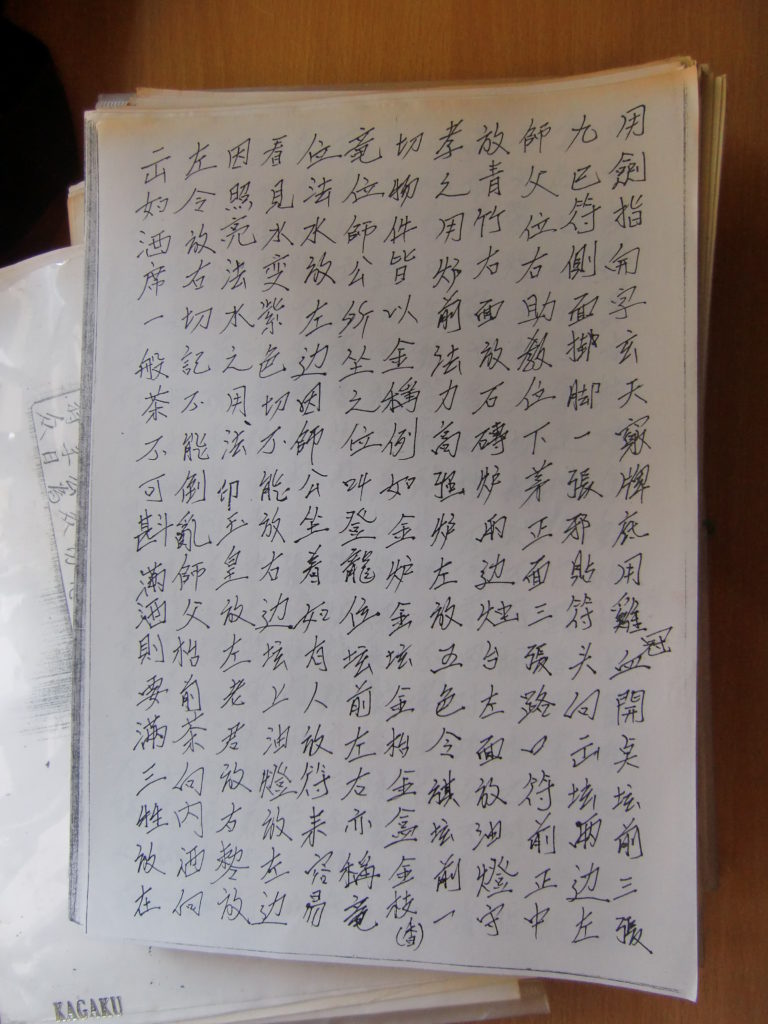 用劍指向字玄天竅牌底用雞冠血開点坛前三張
九巴符側面掛脚一張邪貼符头向出坛兩边左
師父位右助教位下茅正面三張路口符前正中
放青竹右面放石磚炉兩边灶台左面放油燈守
孝之用炉前法力高强炉左放五色令旗坛前一
切物件皆以金稱例如金炉金坛金枱金盒金枝(香)
竟位師公所坐之位叫登龍位坛前左右亦稱竟
位法水放左边因師公坐着如有人放符来容易
看見水变紫色切不能放右边坛上油燈放左边
因照亮法水之用法印玉皇放左老君放右 放
左令放右切記不能倒亂師父枱前茶向内酒向
出如酒席一般茶不可斟滿酒則要滿三牲放在
KAGAKU